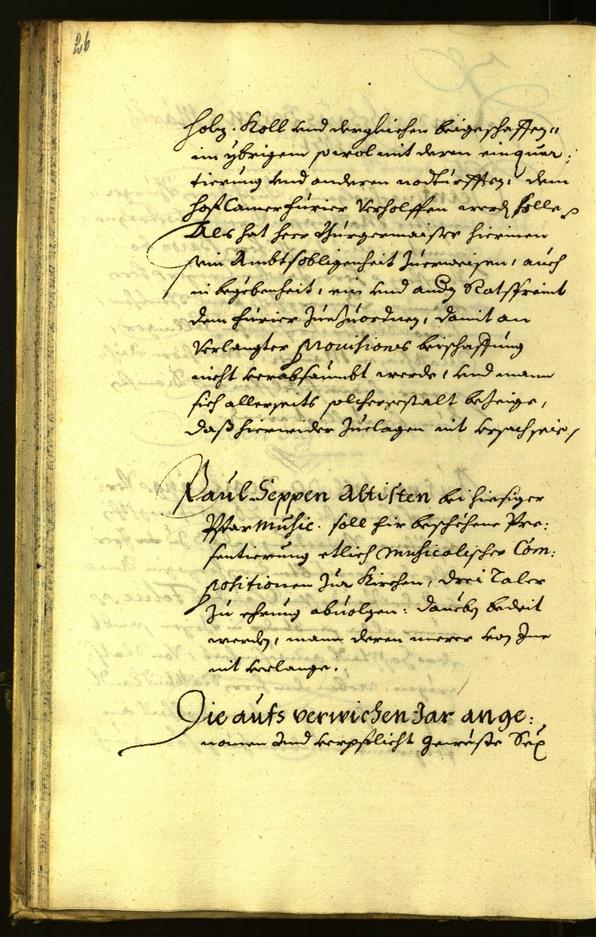 26
holz. Koll und dergleichen beigeschaffen,
im ybrigem sowol mit deren einquar:
tierung und anderen nodturfften, dem
hof Camerfurier verholffen werd solle,
Als hat herr Burgermaister hierinen
sein Ambtsobligenheit zuerweisen, auch
in begebenheit, ein und andern Ratsfreint
dem furier zuezuordnen, damit an
verlangter Provisiones beischaffung
nicht verabsaumbt werde, und mann
sich allerseits solchergestalt bezeige,
daß hierwider zuclagen nit ursach seie,
Paul Seppen Altisten bei hiesiger
Pfar Music. soll für beschehene Pre:
sentierung etlich Musicalischer Com:
positionen zur Kirchen, drei Taler
zu ehrung abuolgen: daneben bedeit
werden, mann deren merer von Ime
nit verlange.
Die aufs verwichen Jar ange:
nomen und verpflicht geweste Sex